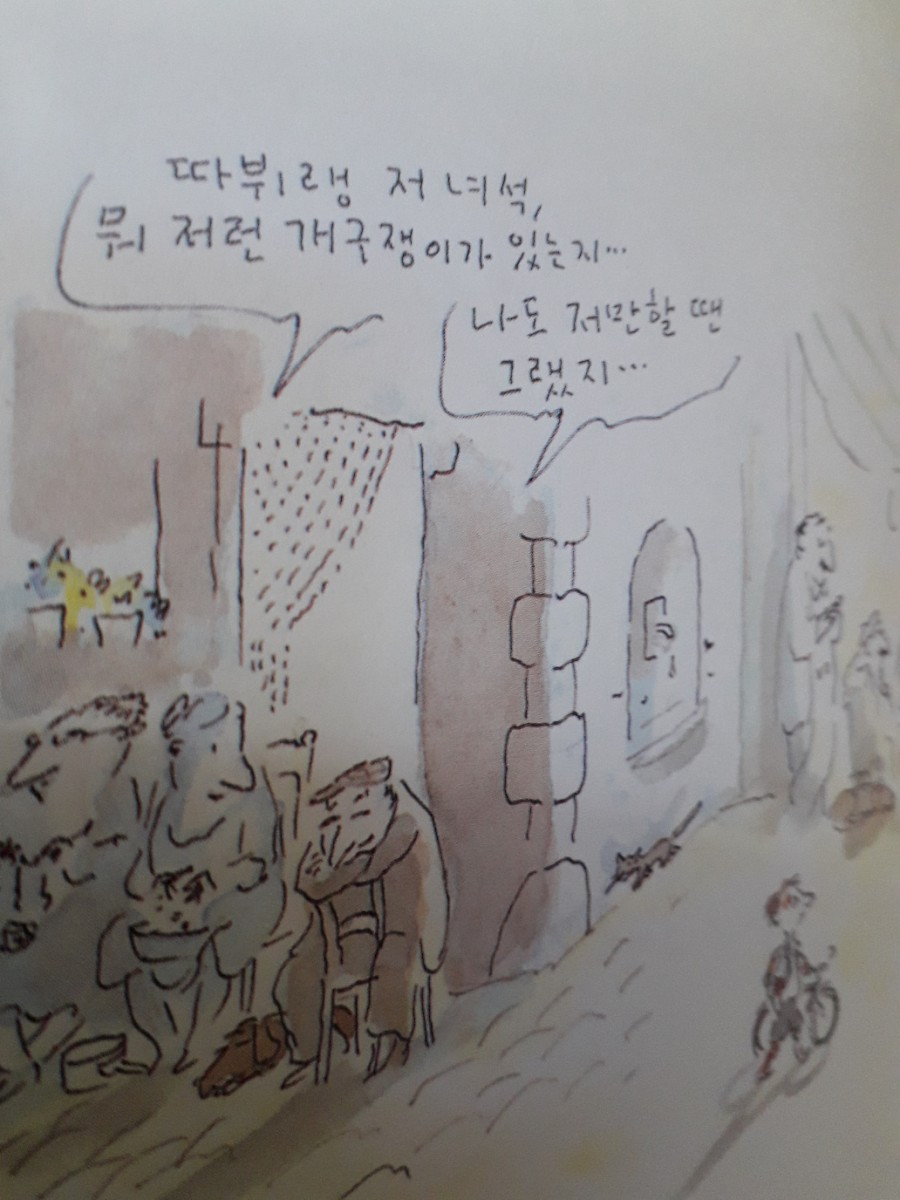 따뷔랭 저 녀석,
뭐 저런 개구쟁이가 있는지…
나도 저만할 땐
그랬지…